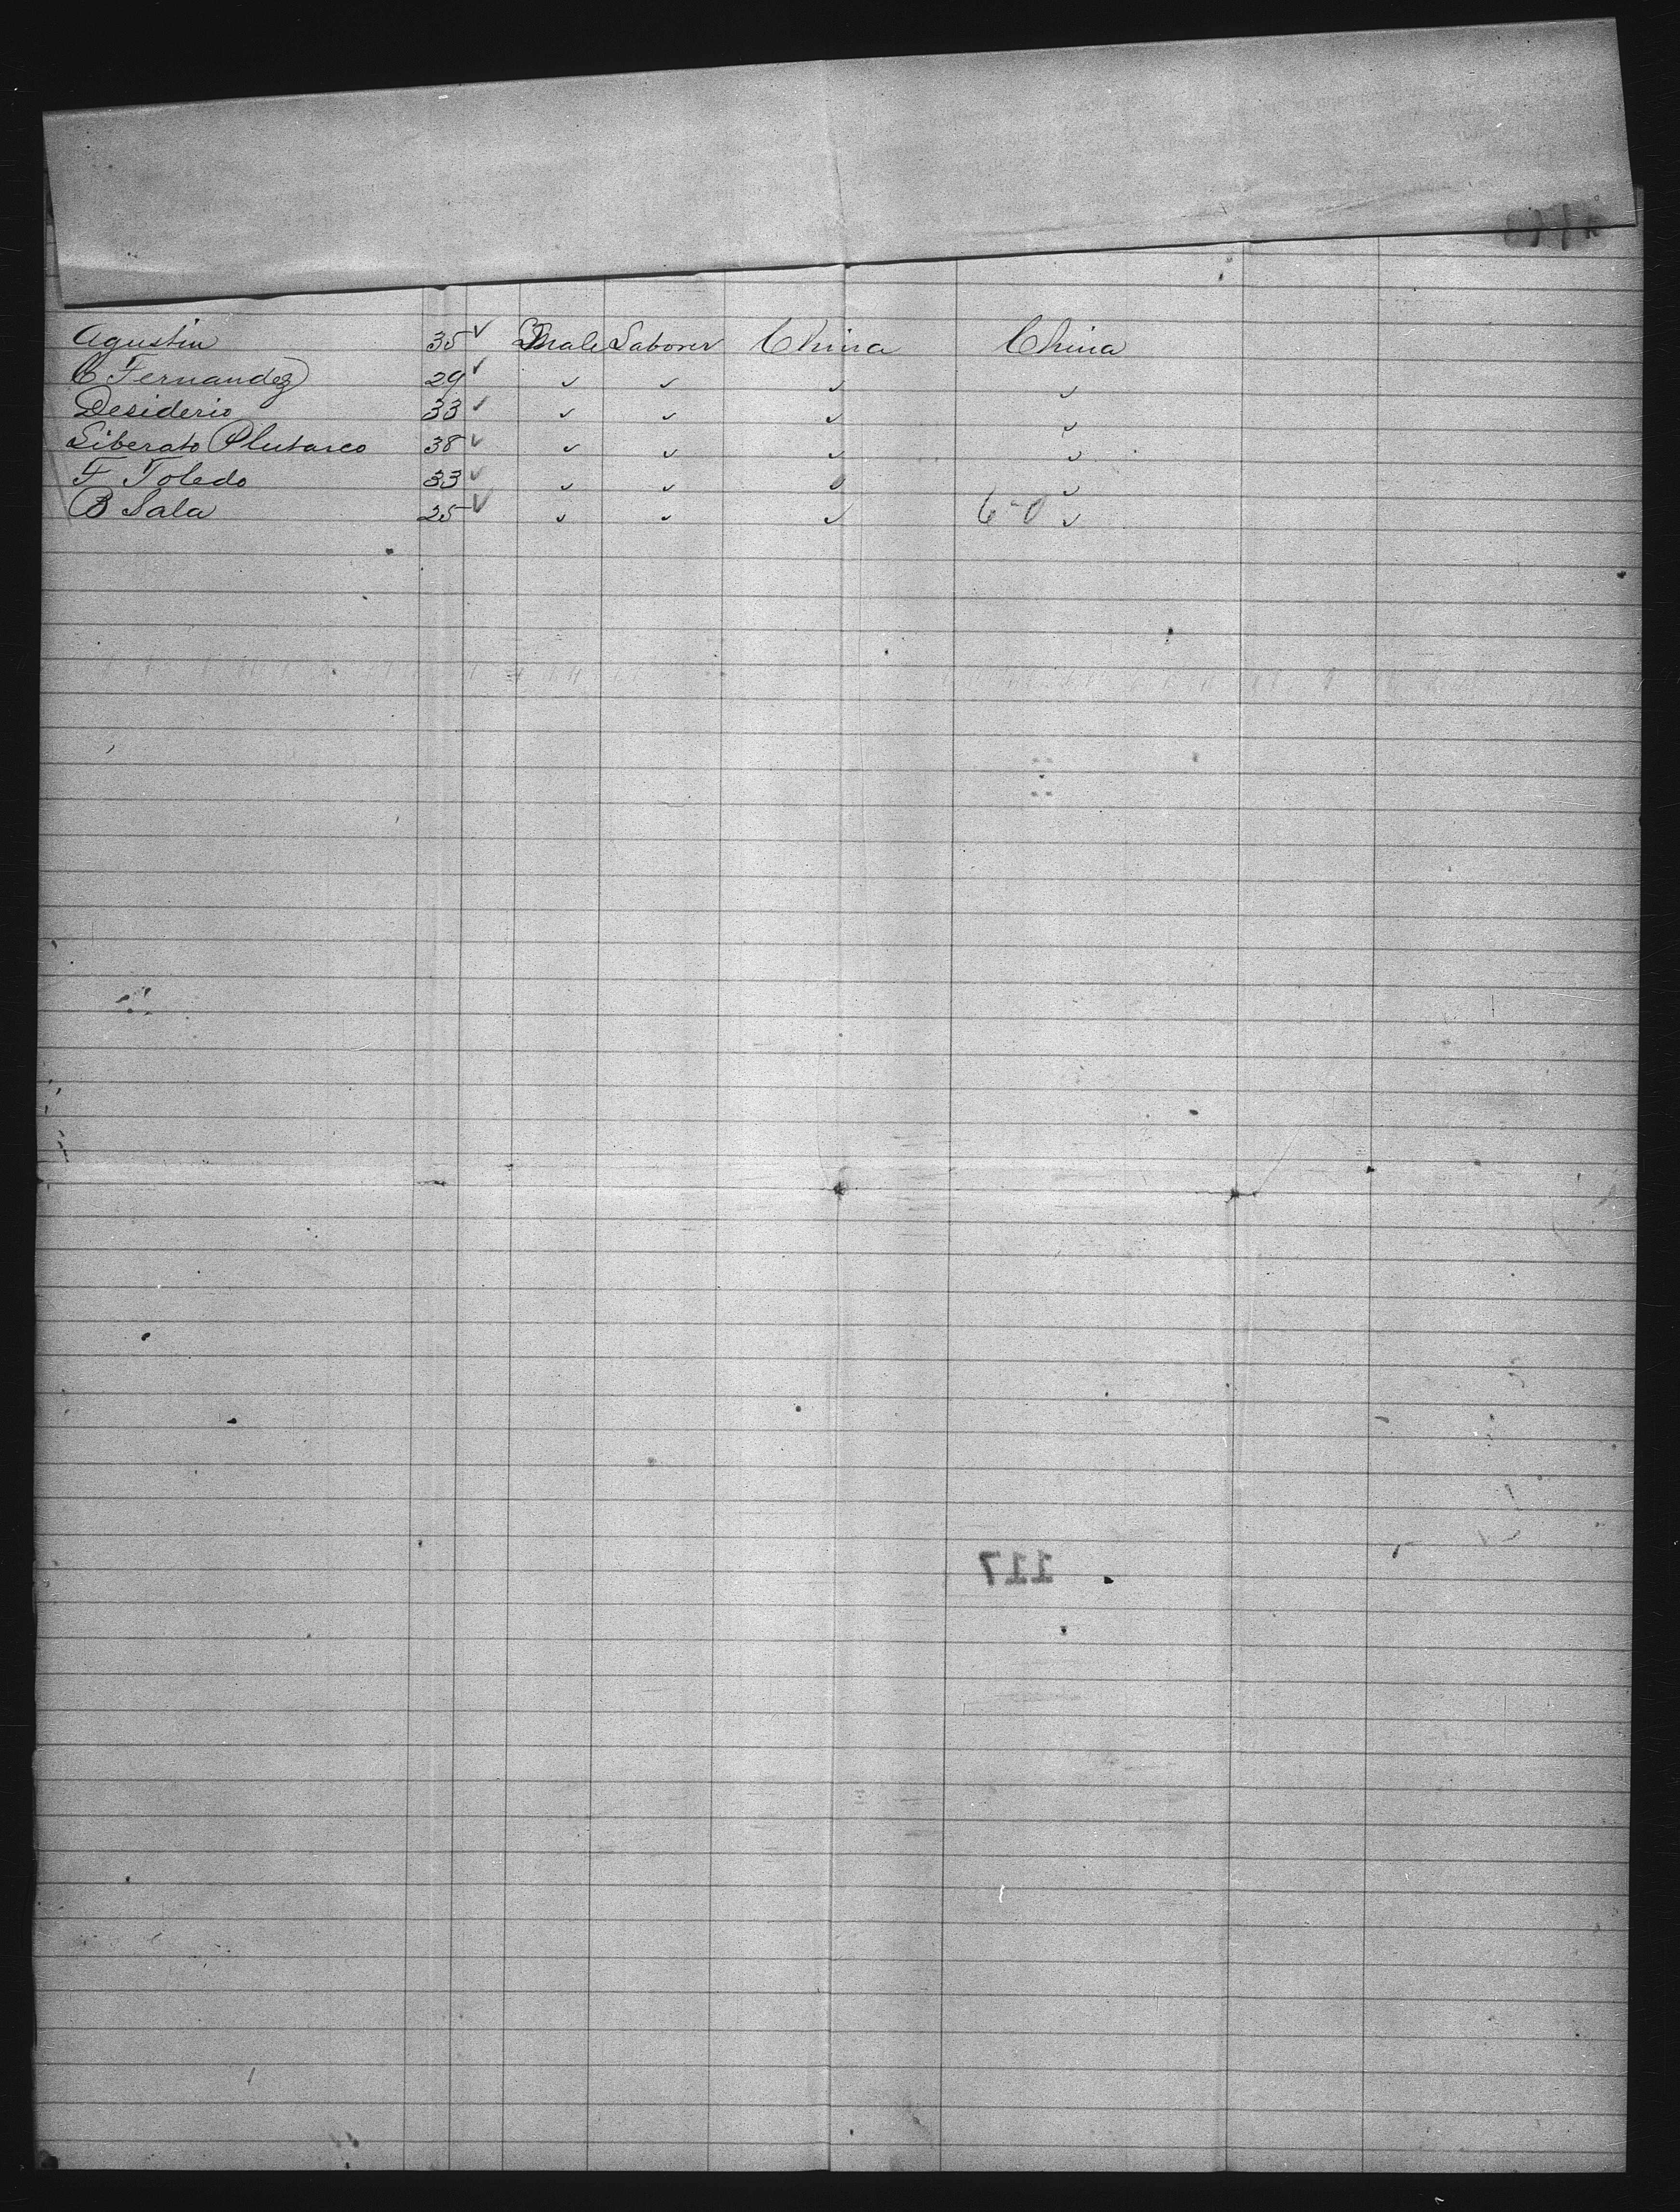 Agustin 35 ✓ Male Laborer China China
C Fernandez 29 ✓ ✓ ✓ ✓ ✓
Desiderio 33 ✓ ✓ ✓ ✓ ✓
Liberato Plutarco 38 ✓ ✓ ✓ ✓ ✓
F Toledo 33 ✓ ✓ ✓ ✓ ✓
B Sala 25 ✓ ✓ ✓ ✓ 6-0 ✓
117